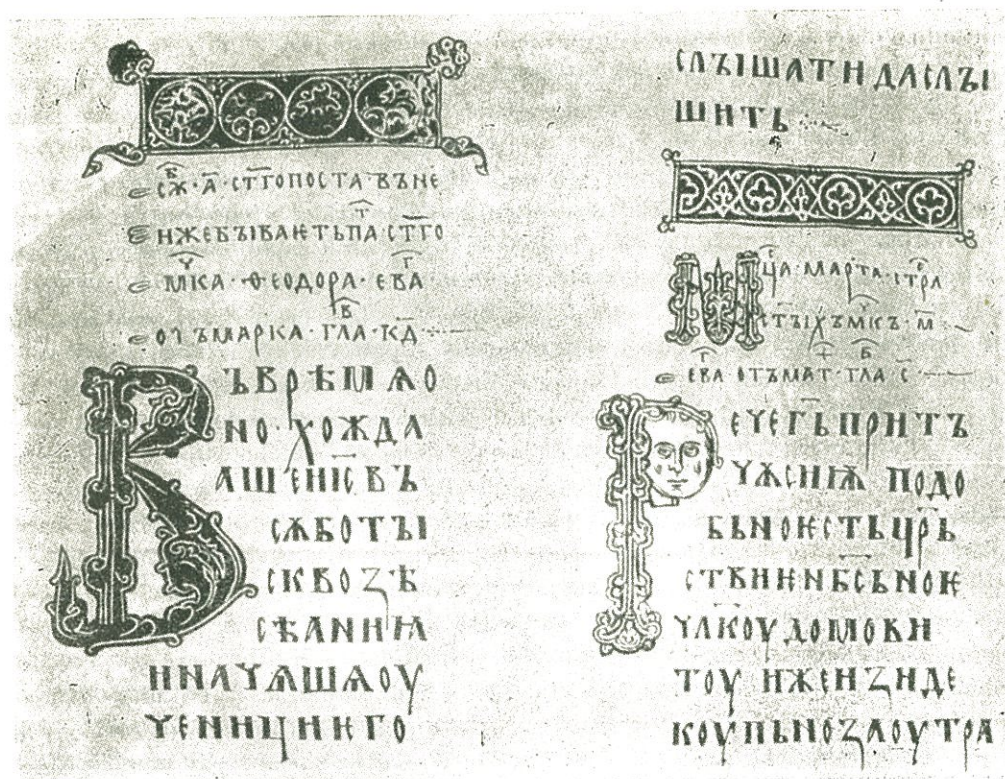 сѫ҃б · а҃ · ст҃гопоста въне
нжебꙑваѥтьпа ст҃го
м҃ка · ѳеодора · ев҃а
отъмарка · гла · кд҃ ·
Въврѣмѧо
но · хожда
ашеис҃ въ
сѫботꙑ
сквозѣ
сѣꙗниꙗ
иначѧшѧоу
ченициѥго
слꙑшатидаслꙑ
шить
Мц҃а · марта · стра
ст҃ꙑхъмк҃ъ · м҃ ·
ев҃а отъмат · гла · с҃
Речегь҃притъ
чѫсиѭ подо
бьноѥстьцр҃ь
ствиѥнб҃сьноѥ
члк҃оу домови
тоу ижеизиде
коупьнозаоутра